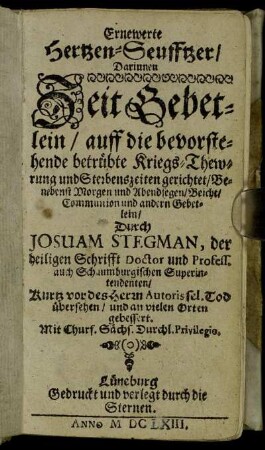 Ernewerte
Hertzen-Seufftzer/
Darinnen
Zeit Gebet-
lein/ auff die bevorste-
hende betrübte Kriegs-Thew-
rung und Sterbenszeiten gerichtet/ Be-
nebenst Morgen und Abendsegen/ Beicht/
Communion und andern Gebet-
lein/
Durch
JOSUAM STEGMAN, der
heiligen Schrifft Doctor und Profess.
auch Schaumburgischen Superin-
tendenten/
Kurtz vor des Herrn Autoris sel. Tod
übersehen/ und an vielen Orten
gebessert.
Mit Churf. Sächs. Durchl. Privilegio.
Lüneburg
Gedruckt und verlegt durch die
Sternen.
ANNO M DC LXIII.